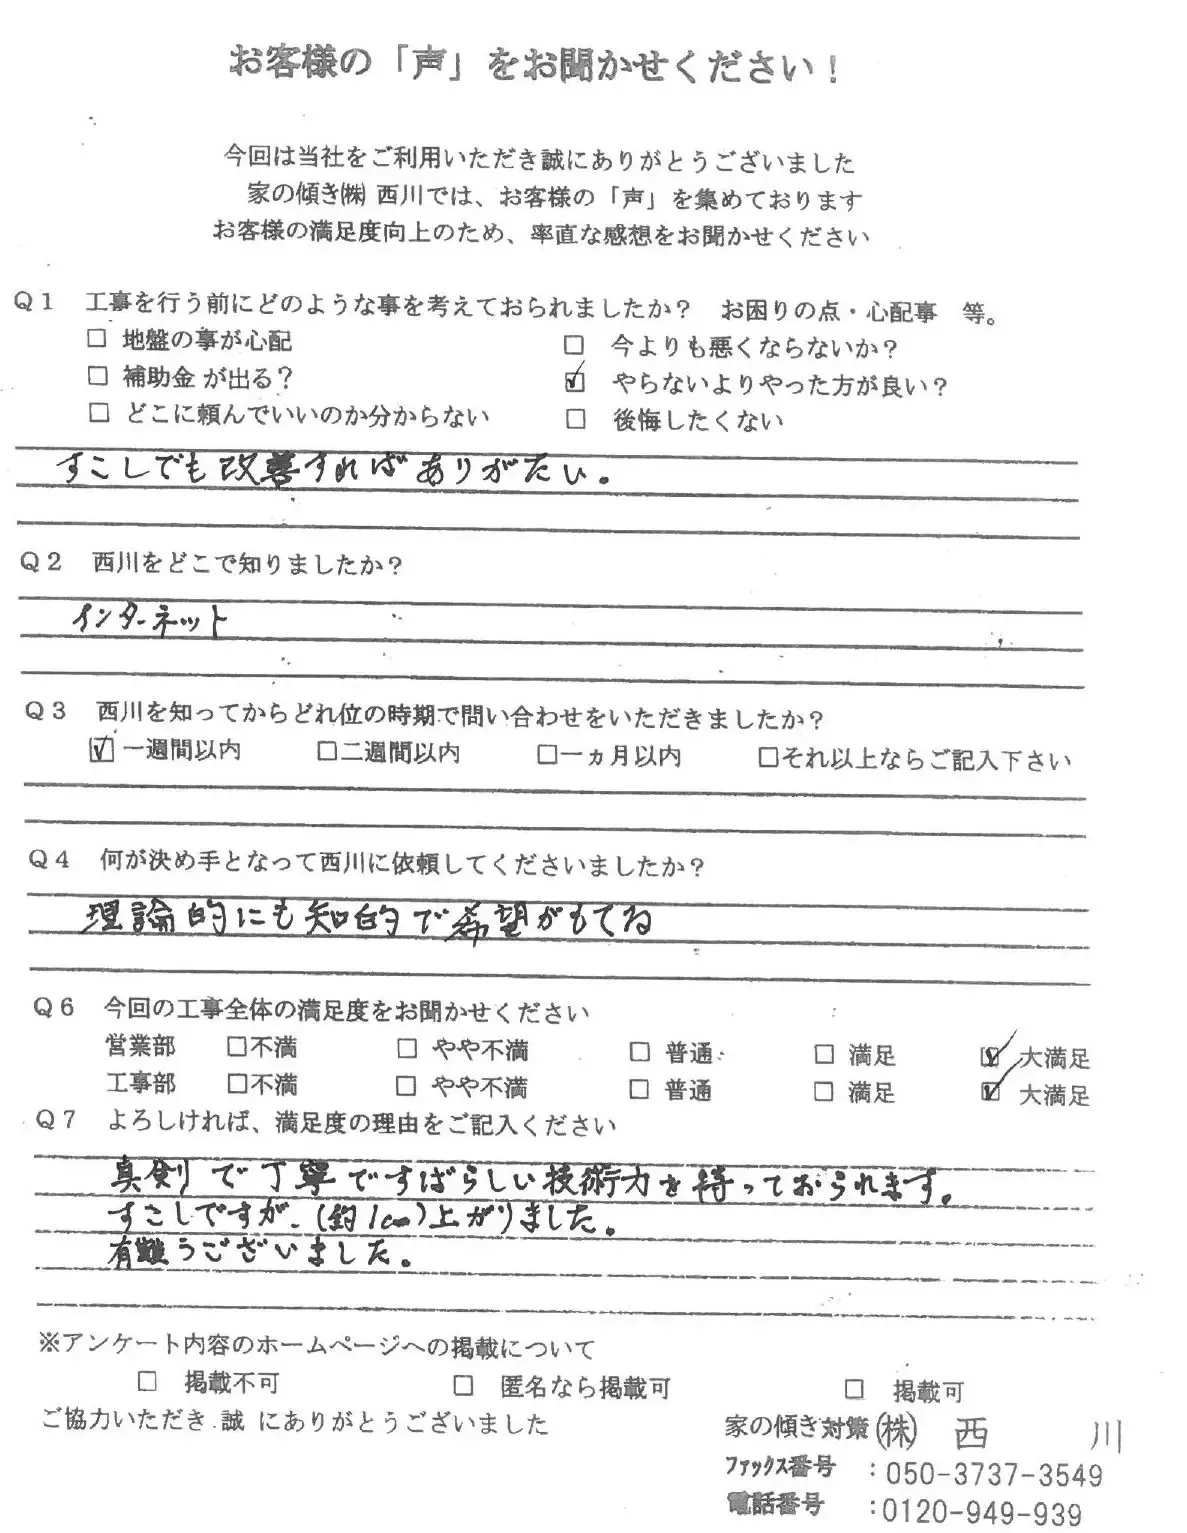 お客様の「声」をお聞かせください！
今回は当社をご利用いただき誠にありがとうございました
家の傾き㈱ 西川では、お客様の「声」を集めております
お客様の満足度向上のため、率直な感想をお聞かせください
Ｑ１　工事を行う前にどのような事を考えておられましたか？　お困りの点・心配事　等。
□ 地盤の事が心配　□ 今よりも悪くならないか？
□ 補助金が出る？　☑ やらないよりやった方が良い？
□ どこに頼んでいいのか分からない　□ 後悔したくない
すこしでも改善すればありがたい。
Ｑ２　西川をどこで知りましたか？
インターネット
Ｑ３　西川を知ってからどれ位の時期で問い合わせをいただきましたか？
☑一週間以内　□二週間以内　□一ヵ月以内　□それ以上ならご記入下さい
Ｑ４　何が決め手となって西川に依頼してくださいましたか？
理論的にも知的で希望がもてる
Ｑ６　今回の工事全体の満足度をお聞かせください
営業部　□不満　□ やや不満　□ 普通　□ 満足　☑ 大満足
工事部　□不満　□ やや不満　□ 普通　□ 満足　☑ 大満足
Ｑ７　よろしければ、満足度の理由をご記入ください
真剣で丁寧ですばらしい技術力を持っておられます。
すこしですが、(約1cm)上がりました。
有難うございました。
※アンケート内容のホームページへの掲載について
□ 掲載不可　□ 匿名なら掲載可　□ 掲載可
ご協力いただき 誠 にありがとうございました
家の傾き対策㈱　西　川
ﾌｧｯｸｽ番号　：050-3737-3549
電話番号　：0120-949-939